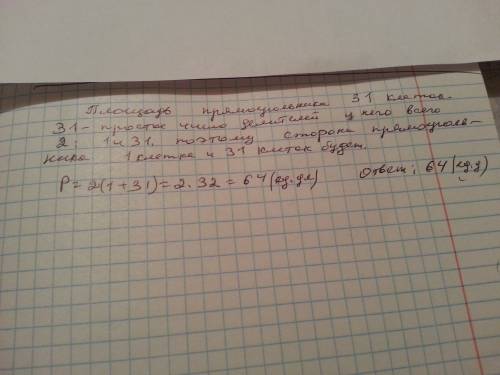 Площадь прямоугольника 31 клеток.
31 - простое число делителей у него всего
2: 1 и 31, поэтому сторона прямоуголь-
ника 1 клетка и 31 клеток будет.
P = 2(1+31) = 2·32 = 64 (ед.дл) Ответ: 64 (ед.д)